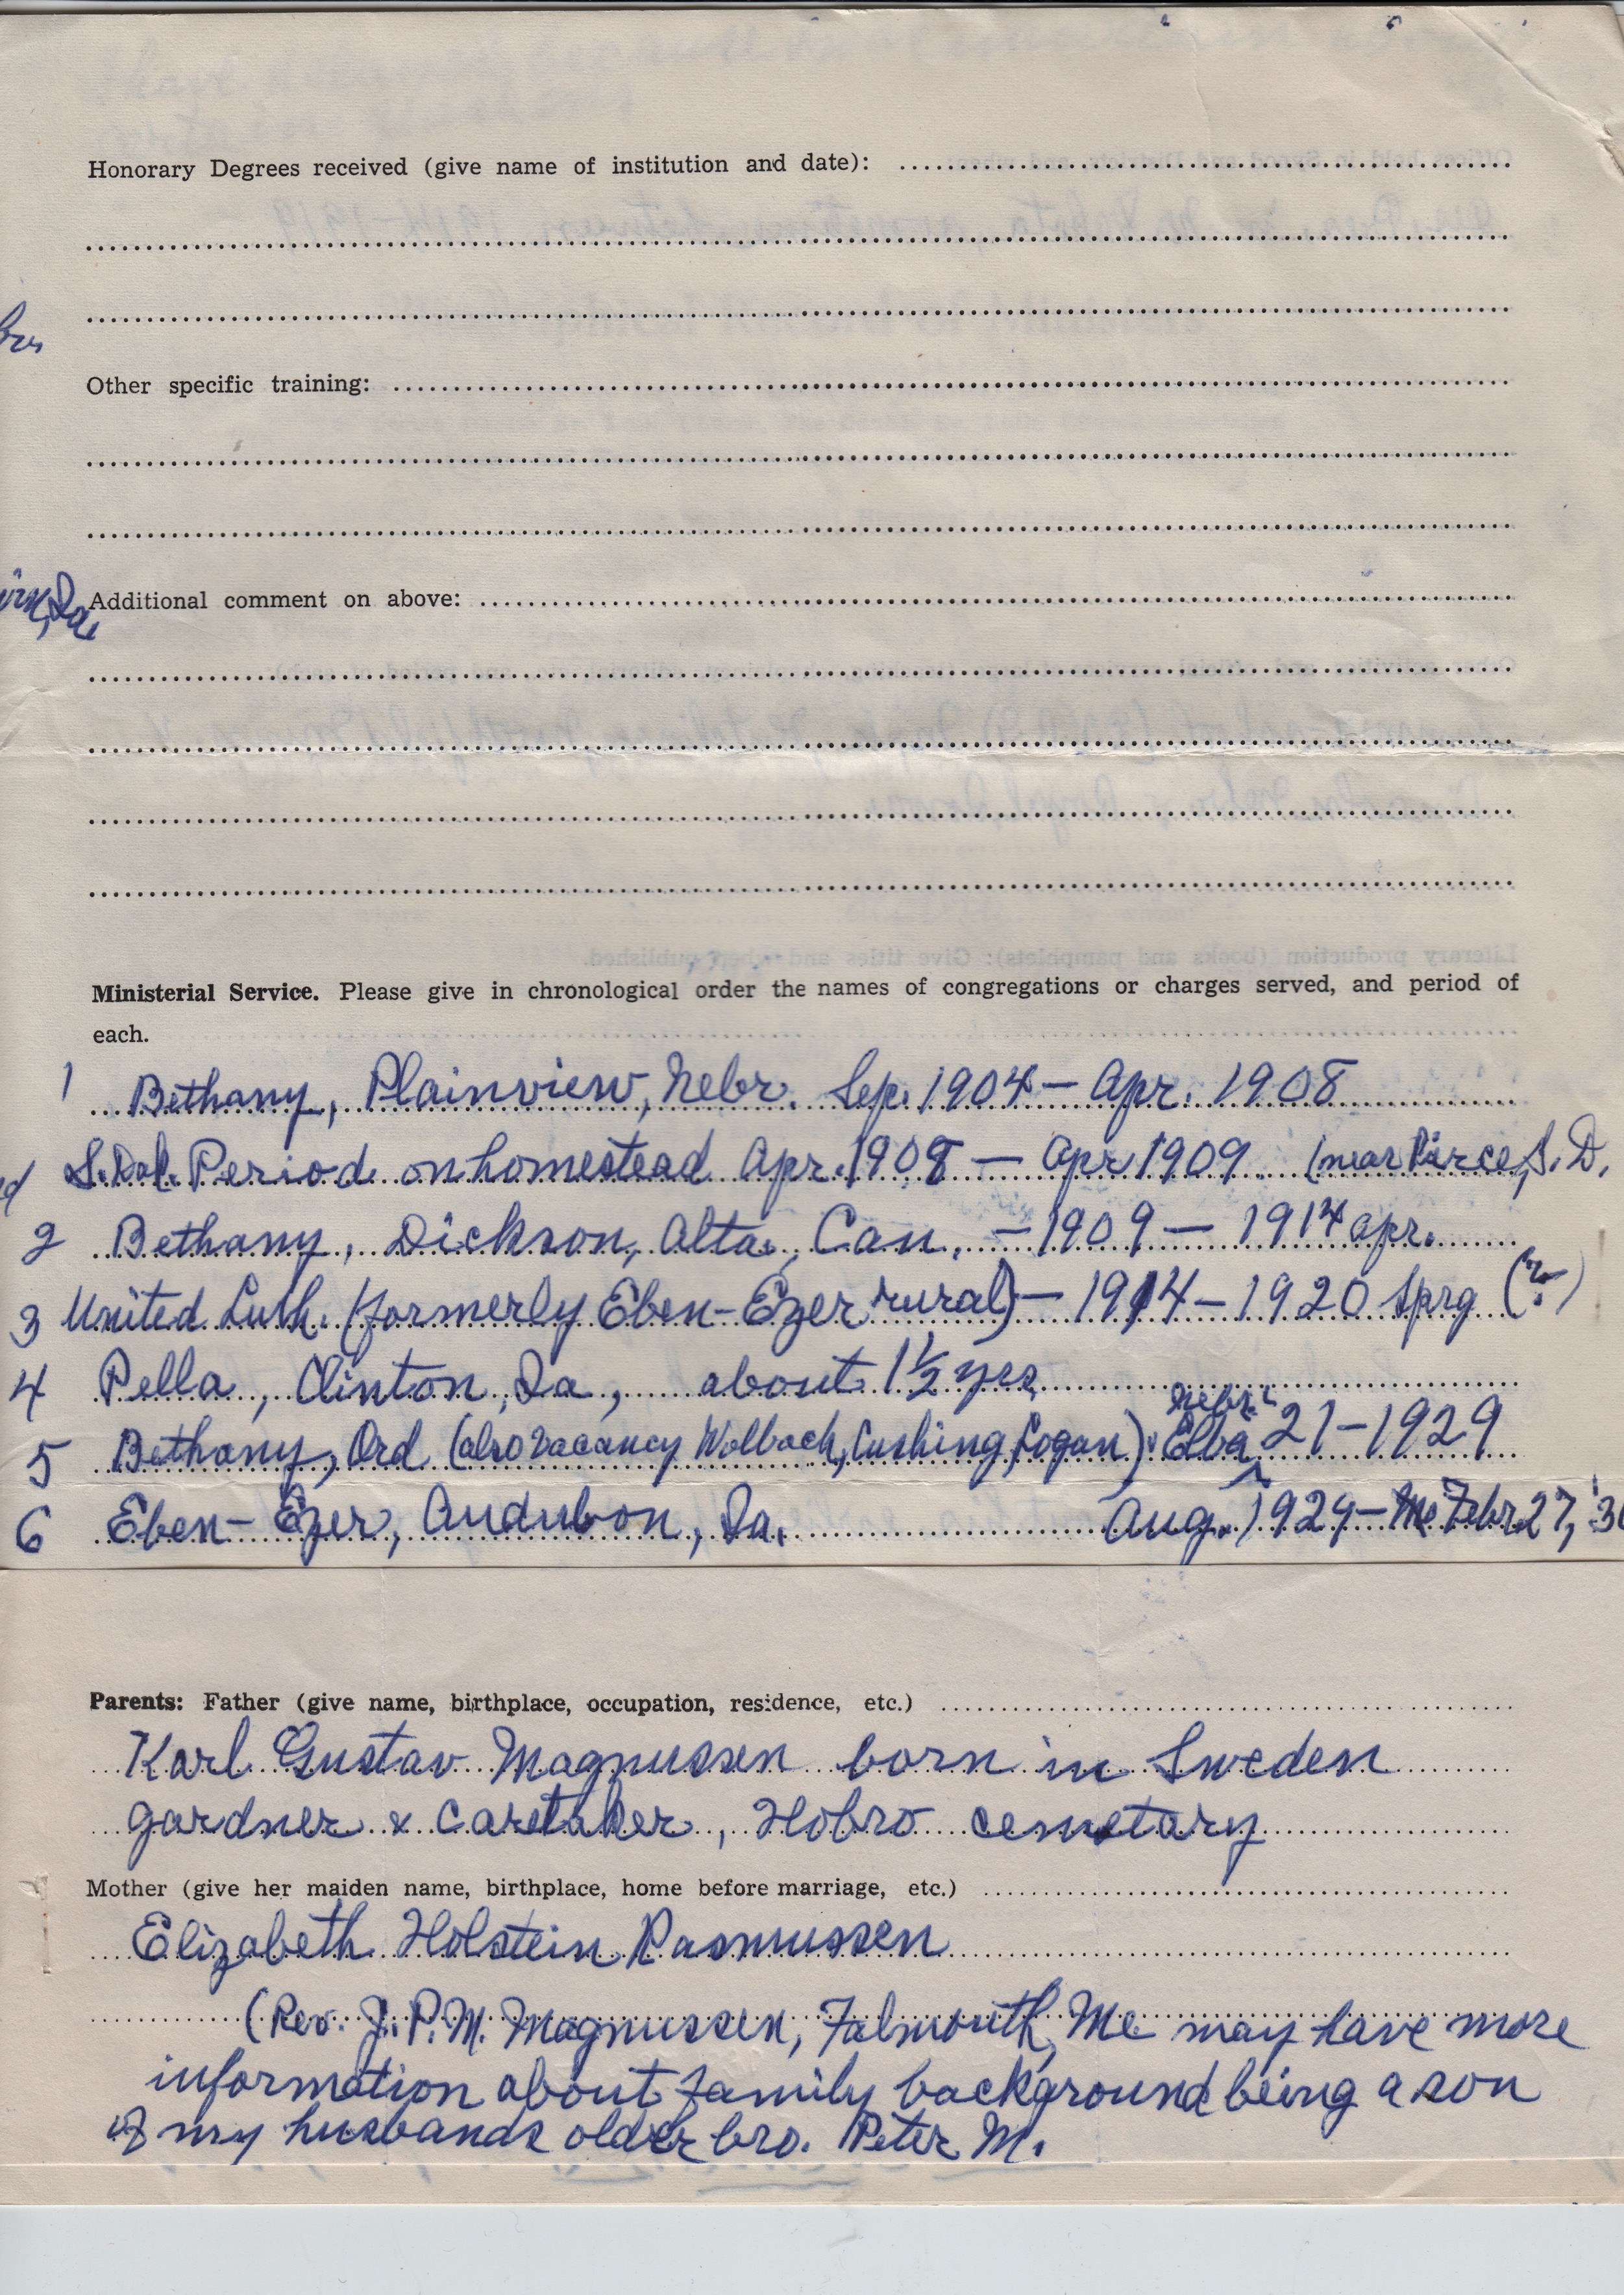 Honorary Degrees received (give name of institution and date):
Other specific training:
Additional comment on above:
Ministerial Service. Please give in chronological order the names of congregations or charges served, and period of
each.
1 Bethany, Plainview, Nebr. Sep. 1904 – Apr. 1908
S. Dak. Period on homestead Apr. 1908 – Apr 1909 (near Pierce, S. D.
2 Bethany, Dickson, Alta., Can. – 1909 – 1914 apr.
3 United Luth. (formerly Eben-Ezer rural) – 1914 – 1920 Sprg (?)
4 Pella, Clinton, Ia, about 1½ yrs
Nebr.
5 Bethany, Ord (also vacancy Wolbach, Cushing, Logan) Elba 21 – 1929
6 Eben-Ezer, Audubon, Ia. Aug. 1929 – Febr 27, '3
Parents: Father (give name, birthplace, occupation, residence, etc.)
Karl Gustav Magnussen born in Sweden
gardner & caretaker, Hobro cemetary
Mother (give her maiden name, birthplace, home before marriage, etc.)
Elizabeth Holstein Rasmussen
(Rev. J. P. M. Magnussen, Falmouth, Me may have more
information about family background being a son
of my husbands older bro. Peter M.